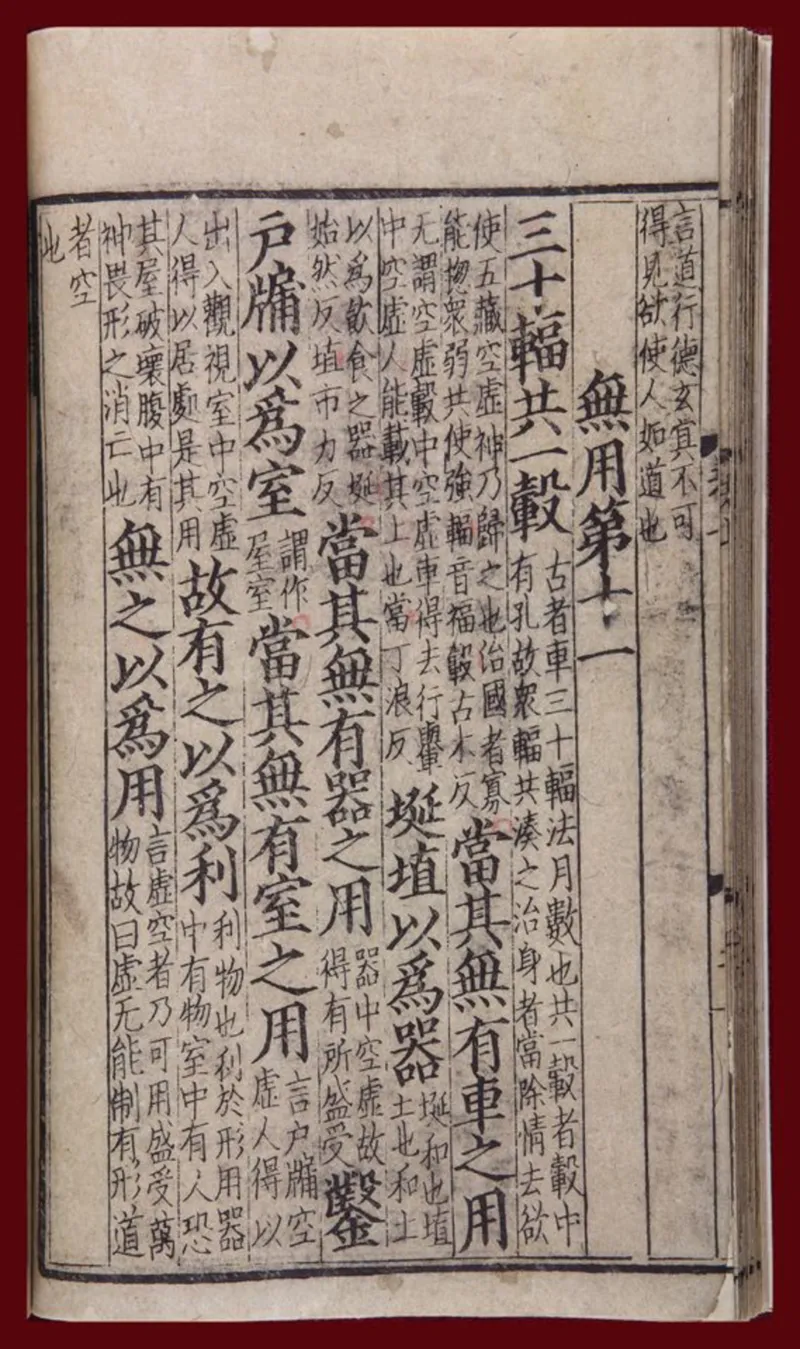 言道行德玄冥不可得見欲使人如道也
無用第十一
三十輻共一轂古者車三十輻法月數也共一轂者轂中有孔故衆輻共湊之治身者當除情去欲
使五藏空虛神乃歸之也治國者寡能揔衆弱共使強輻音福轂古木反當其無有車之用
无謂空虛轂中空虛車得去行轝中空虛人能載其上也當丁浪反埏埴以爲器埏和也埴土也和土
以爲飲食之器埏始然反埴市力反當其無有器之用器中空虛故得有所盛受鑿
户牖以爲室謂作屋室當其無有室之用言户牖空虛人得以
出入觀視室中空虛人得以居處是其用故有之以爲利利物也利於形用器中有物室中有人恐
其屋破壞腹中有神畏形之消亡也無之以爲用言虛空者乃可用盛受萬物故曰虛无能制有形道
者空也